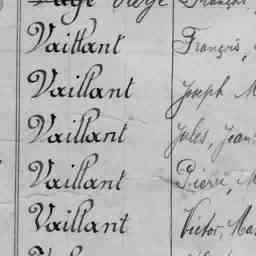 Vaillant François,
Vaillant Joseph M
Vaillant Jules, Jean
Vaillant Pierre, M
Vaillant Victor, Ma